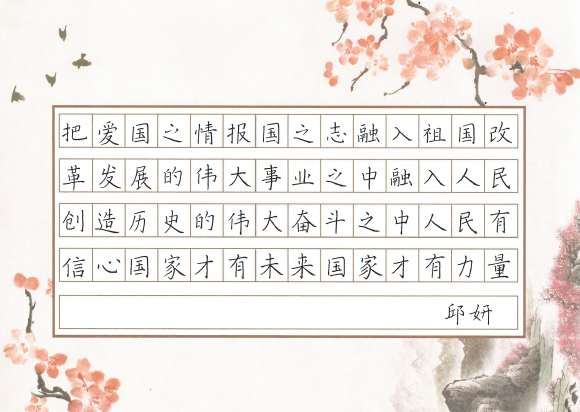 把爱国之情报国之志融入祖国改
革发展的伟大事业之中融入人民
创造历史的伟大奋斗之中人民有
信心国家才有未来国家才有力量
邱妍